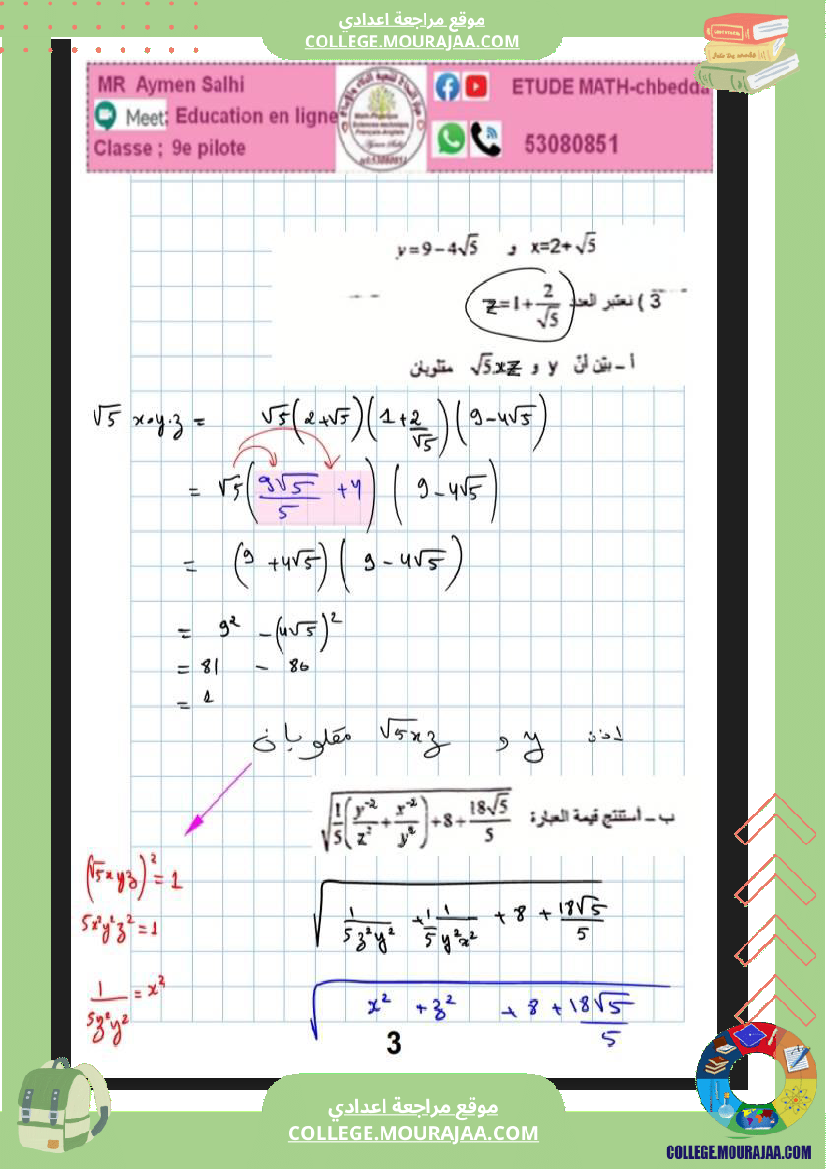 موقع مراجعة اعدادي
COLLEGE.MOURAJAA.COM
MR Aymen Salhi
Meet: Education en ligne
Classe ; 9e pilote
ETUDE MATH-chbedda
53080851
y=9-4√5 و x=2+√5
3 ) نعتبر العدد z=1+2/√5
أ - بيّن أنّ y و √5xz مقلوبان
√5 x.y.z = √5(2+√5)(1+2/√5)(9-4√5)
= √5(9√5/5 +4)(9-4√5)
= (9+4√5)(9-4√5)
= 9² -(4√5)²
= 81 - 80
= 1
اذن y و √5xz مقلوبان
ب - أستنتج قيمة العبارة: √(1/5(y⁻²/z²+x⁻²/y²)+8+18√5/5)
(√5xyz)²=1
5x²y²z²=1
1/5z²y² = x²
√(1/5z²y² +1/5 1/y²x² +8+18√5/5)
√(x² +z² +8+18√5/5)
3
موقع مراجعة اعدادي
COLLEGE.MOURAJAA.COM
COLLEGE.MOURAJAA.COM